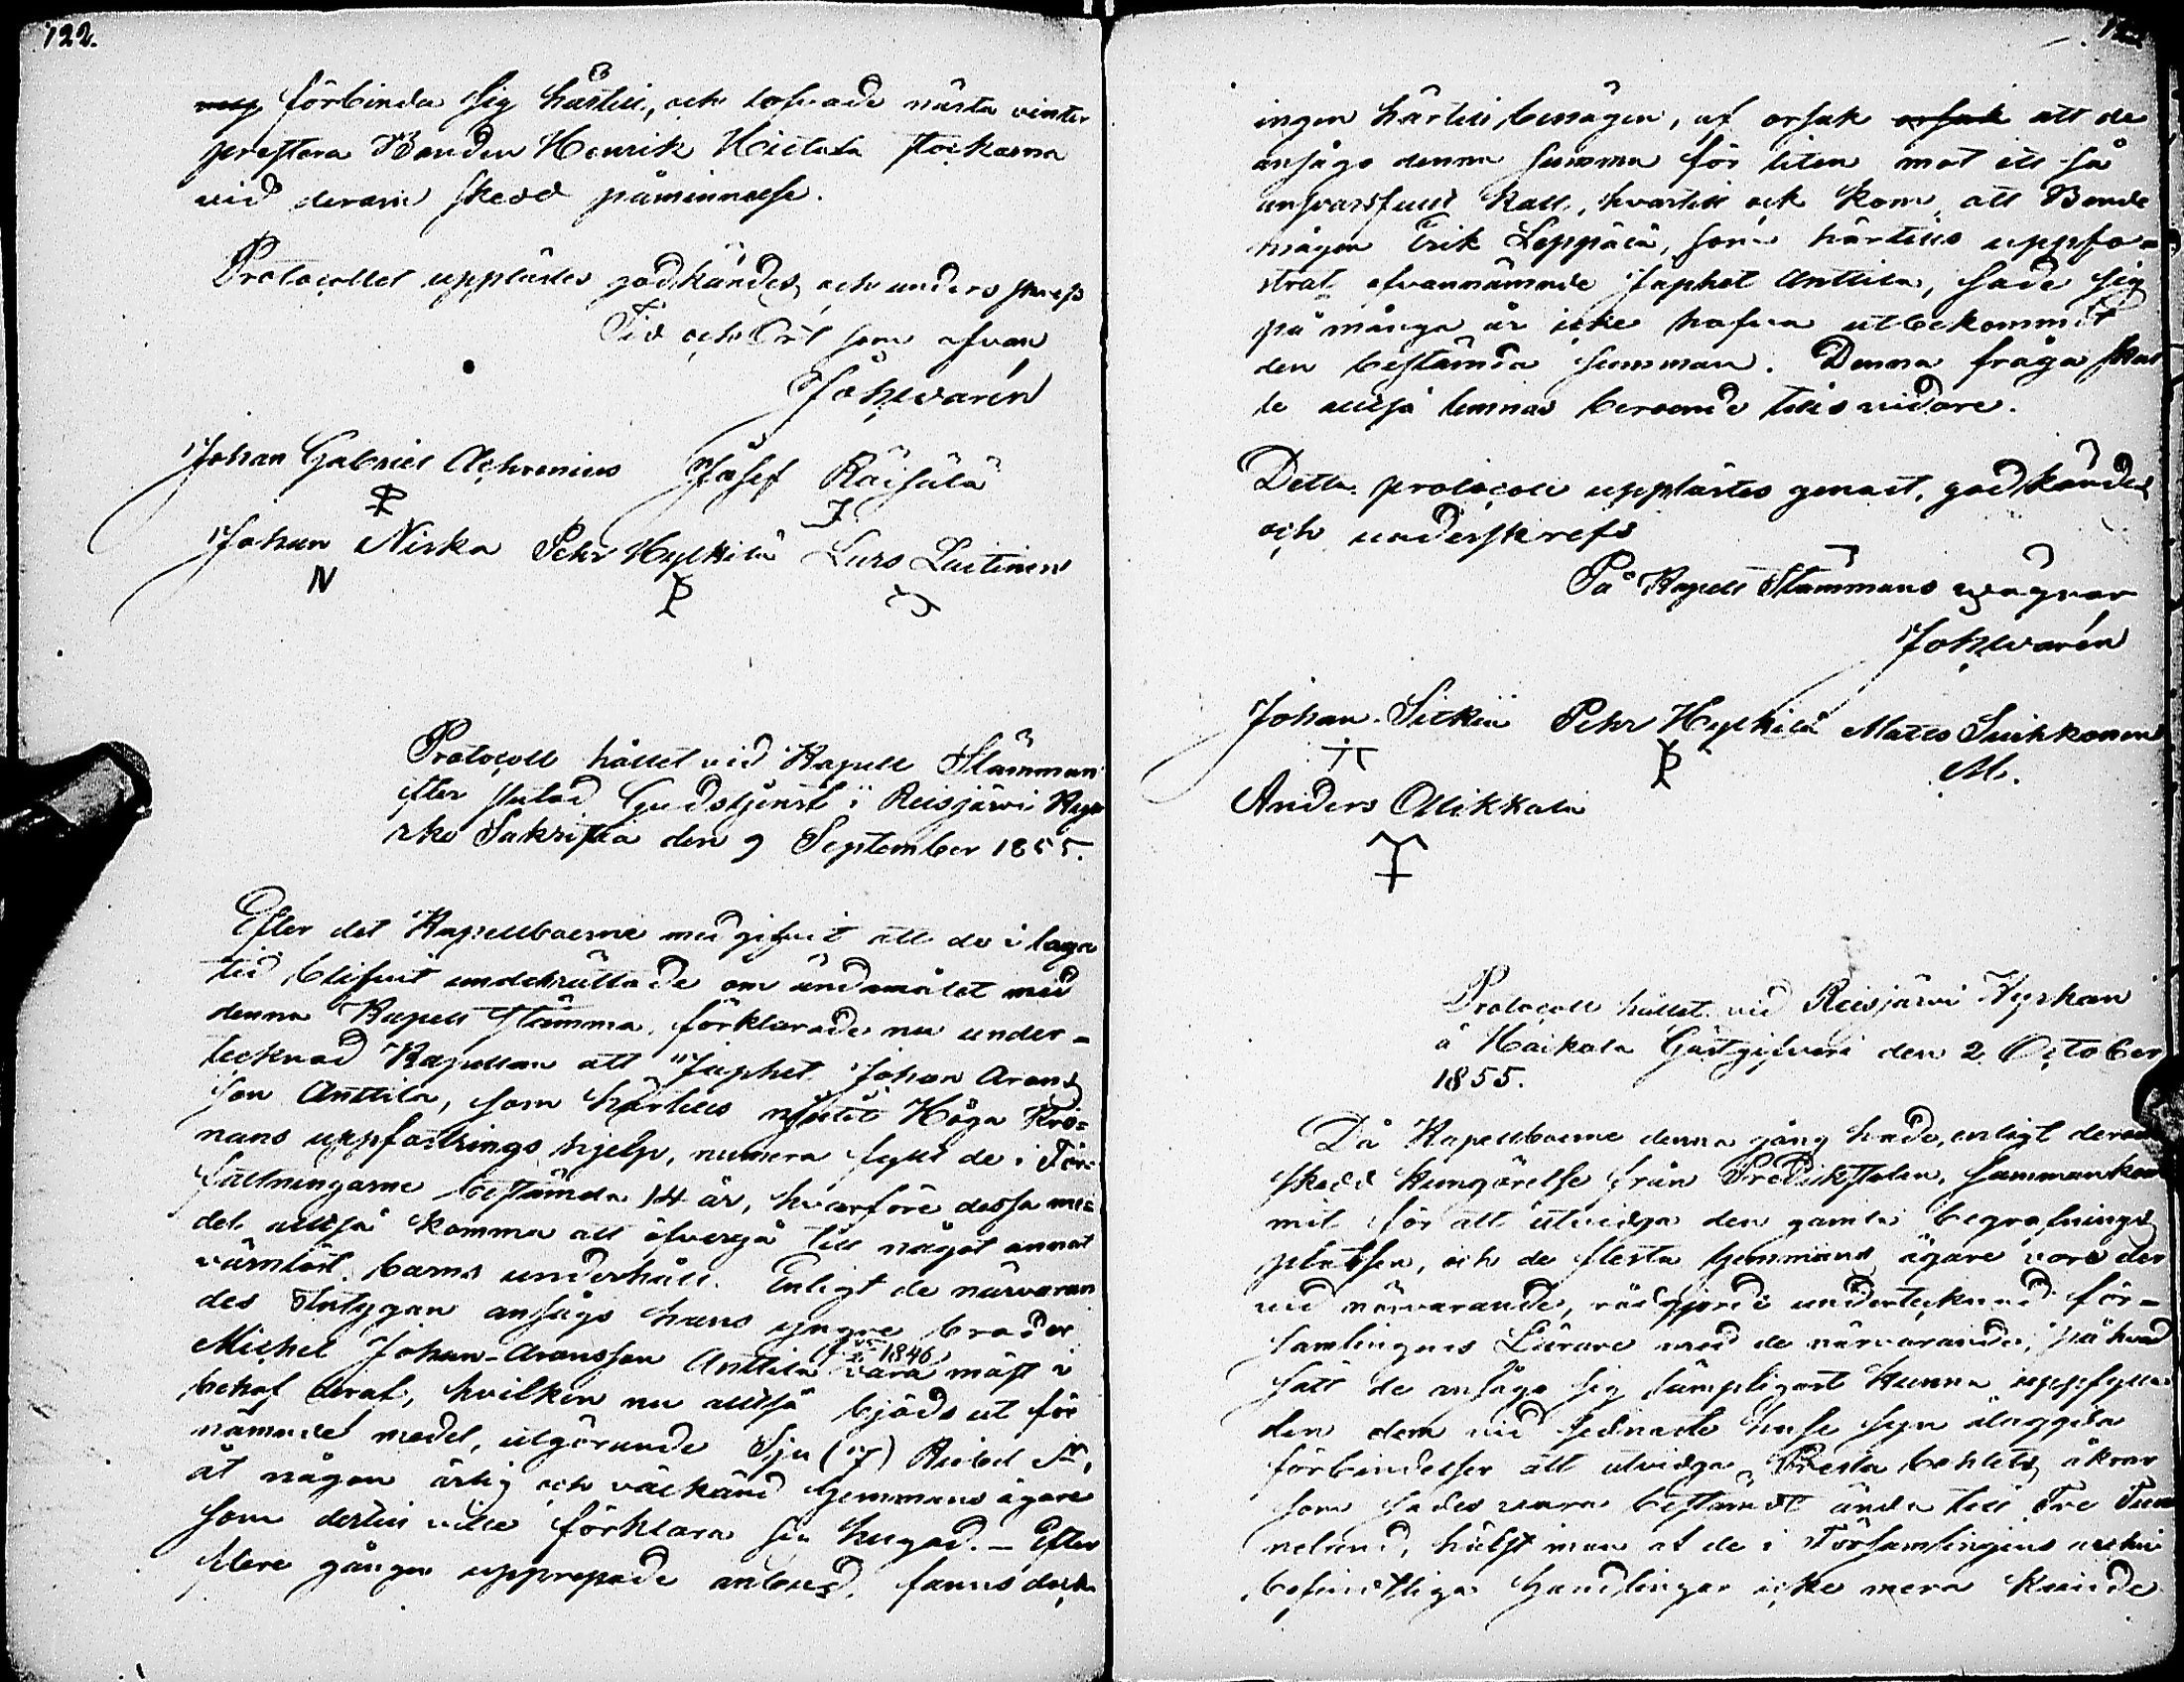 122.
förbinda sig härtill, och lofvade nästa vinter
prestera Bonden Henrik Hietala stockarna
vid derom skedd påminnelse.
Protocollet upplästes godkändes, och underskrefs
Tid och Ort som ofvan
Joh. Warén
Johan Gabriel Achrenius Josef Räisälä
Johan Niska Pehr Hylkilä Lars Laitinen
N
Protocoll hållet vid Kapell Stämman
efter slutad Gudstjenst i Reisjärvi Kyr
rko Sakristia den 9 September 1855.
Efter det Kapellboerne medgifvit att de i laga
tid blifvit underrättade om ändamålet med
denna Kapell stämma, förklarade nu under-
tecknad Kapellan att Japhet Johan Arons
son Anttila, som härtills njutit Höga Kro-
nans uppfostrings hjelp, numera fyllt de i För-
fattningarne bestämda 14 år, hvarföre dessa me-
del alltså komma att öfvergå till något annat
värnlöst barns underhåll. Enligt de närvaran
des intygan ansågs hans yngre broder
Michel Johan-Aronsson Anttila 1846 vara mäst i
behof deraf, hvilken nu alltså bjöds ut för
nämnde medel, utgörande Sju (7) Rubel Sr,
åt någon ärlig och välkänd hemmans ägare
som dertill ville förklara sig hugad. - Efter
flere gånger upprepade anbud, fanns dock
ingen härtill benägen, af orsak orsak att de
ansågo denna summa för liten mot ett så
ansvarsfullt kall, hvartill ock kom, att Bonde
mågen Erik Leppälä, som härtills uppfo-
strat ofvannämnde Japhet Anttila, sade sig
på många år icke hafva utbekommit
den bestämda summan. Denna fråga skul
le alltså lemnas beroende tills vidare.
Detta protocoll upplästes genast, godkändes
och underskrefs
På Kapell Stämmans vägnar
Joh. Warén
Johan Pehr Hylkilä Matts
M.
Anders Ollikkala
Protocoll hållet vid Reisjärvi Kyrkan
å Haikala Gästgifveri den 2 October
1855.
Då Kapellboerne denna gång hade, enligt derom
skedd kungörelse från Predikstolen, sammankom
mit för att utvidga den gamla begrafnings
platsen, och de flesta hemmans ägare vore der
vid närvarande, rådgjorde undertecknad för-
samlingens Lärare med de närvarande, på hvad
sätt de ansågo sig lämpligast kunna uppfylla
den dem vid sednaste husesyn ålaggda
förbindelser att utvidga Prestabohlets åkrar
som sades vara bestämdt ända till Tre Tun
neland, hälst man at de i Församlingens archiv
befindtliga handlingar icke mera kunde